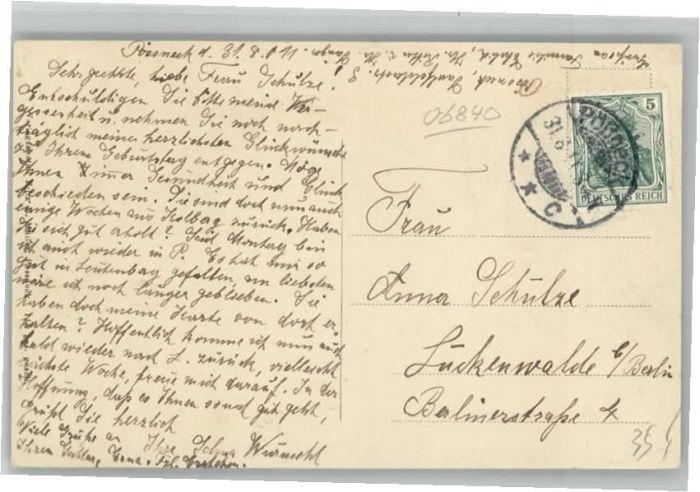 Pössneck d. 31.8.11.
Sehr geehrte, liebe Frau Schulze!
Entschuldigen Sie bitte meine Ver-
gessenheit u. nehmen Sie noch nach-
träglich meine herzlichsten Glückwünsche
zu Ihrem Geburtstag entgegen. Möge
Ihnen immer Gesundheit und Glück
beschieden sein. Sie sind doch nun auch
einige Wochen aus Kolberg zurück. Haben
Sie sich gut erholt? Seid Montag bin
ich auch wieder in P. Es hat mir so
gut in Leutenberg gefallen, am liebsten
wäre ich noch länger geblieben. Sie
haben doch meine Karte von dort er-
halten? Hoffentlich komme ich nun auch
bald wieder nach L. zurück, vielleicht
nächste Woche, freue mich darauf. In der
Hoffnung, daß es Ihnen sonst gut geht,
grüßt Sie herzlich
Ihre Selma
Viele Grüße an
Ihren
06840
5
DEUTSCHES REICH
PÖSSNECK
31.8.11
* * C
Frau
Anna Schulze
Luckenwalde b/Berlin
Berlinerstraße 4
35